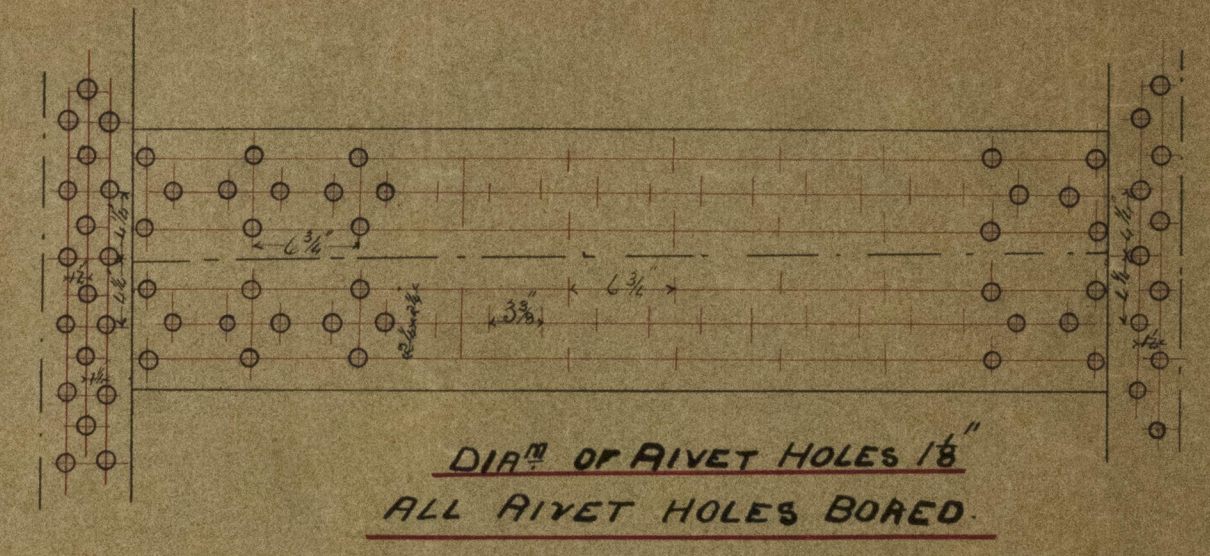 4½"
4½"
1½"
1½"
6¾"
6¾"
3⅜"
4½"
4½"
1½"
DIAM OF RIVET HOLES 1⅛"
ALL RIVET HOLES BORED.